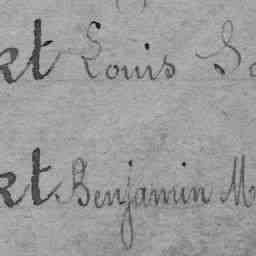 kt Louis
kt. Benjamin M